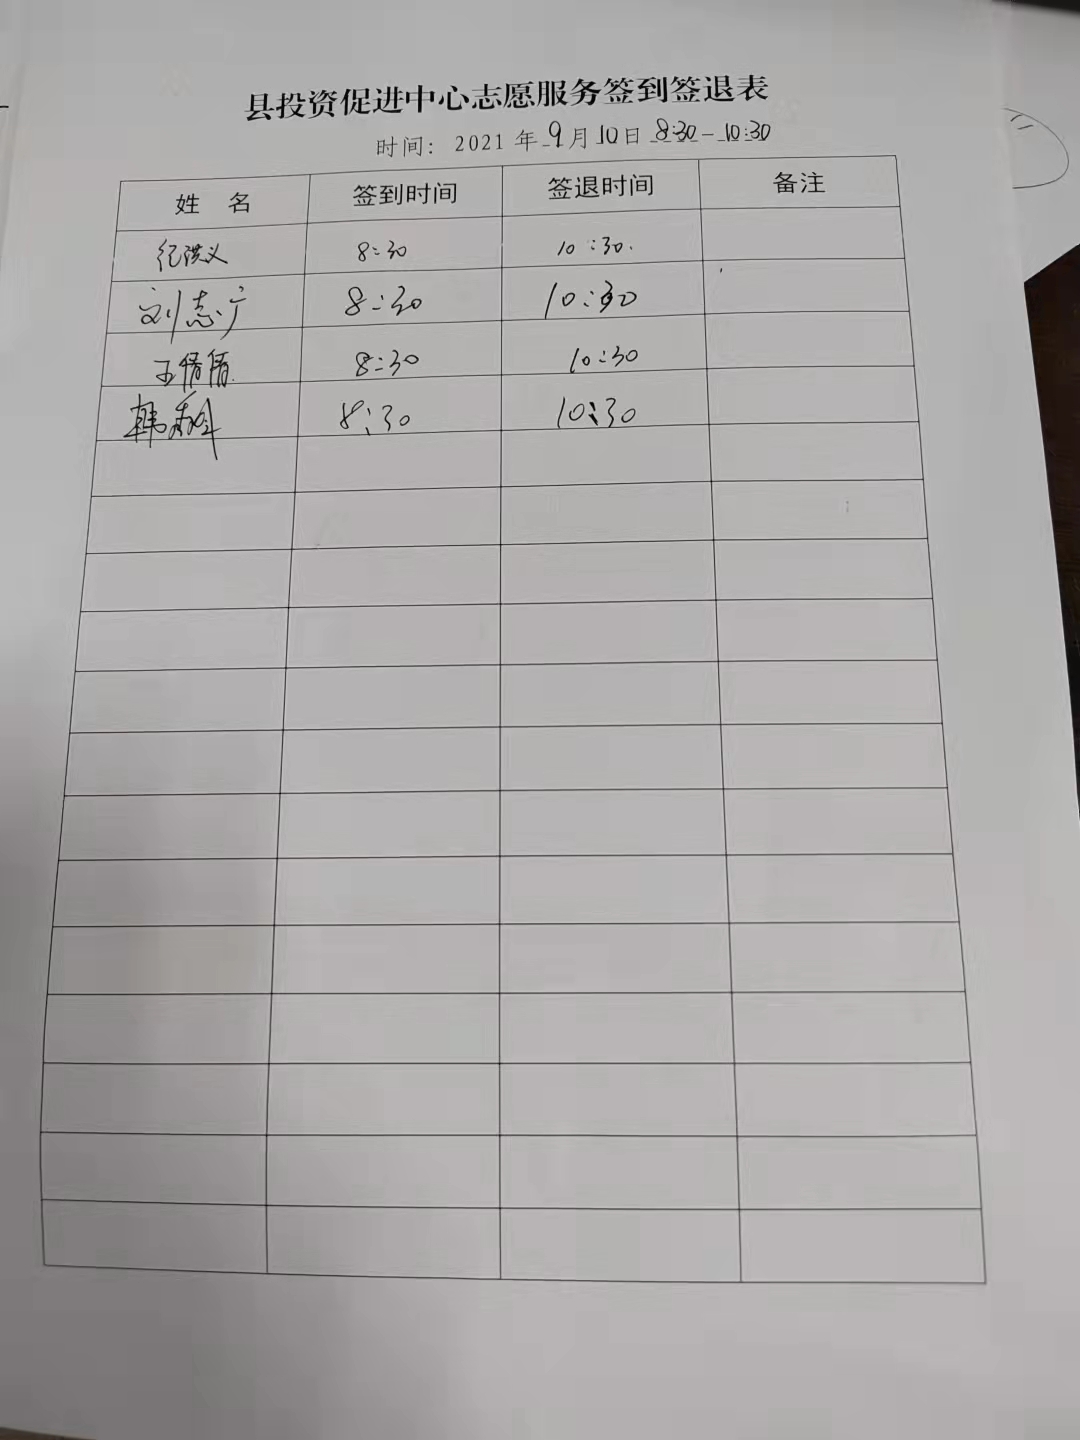 县投资促进中心志愿服务签到签退表
时间: 2021 年 9 月 10 日 8:30-10:30
姓 名 签到时间 签退时间 备注
纪洪义 8:30 10:30
刘志广 8:30 10:30
王倩倩 8:30 10:30
韩 8:30 10:30